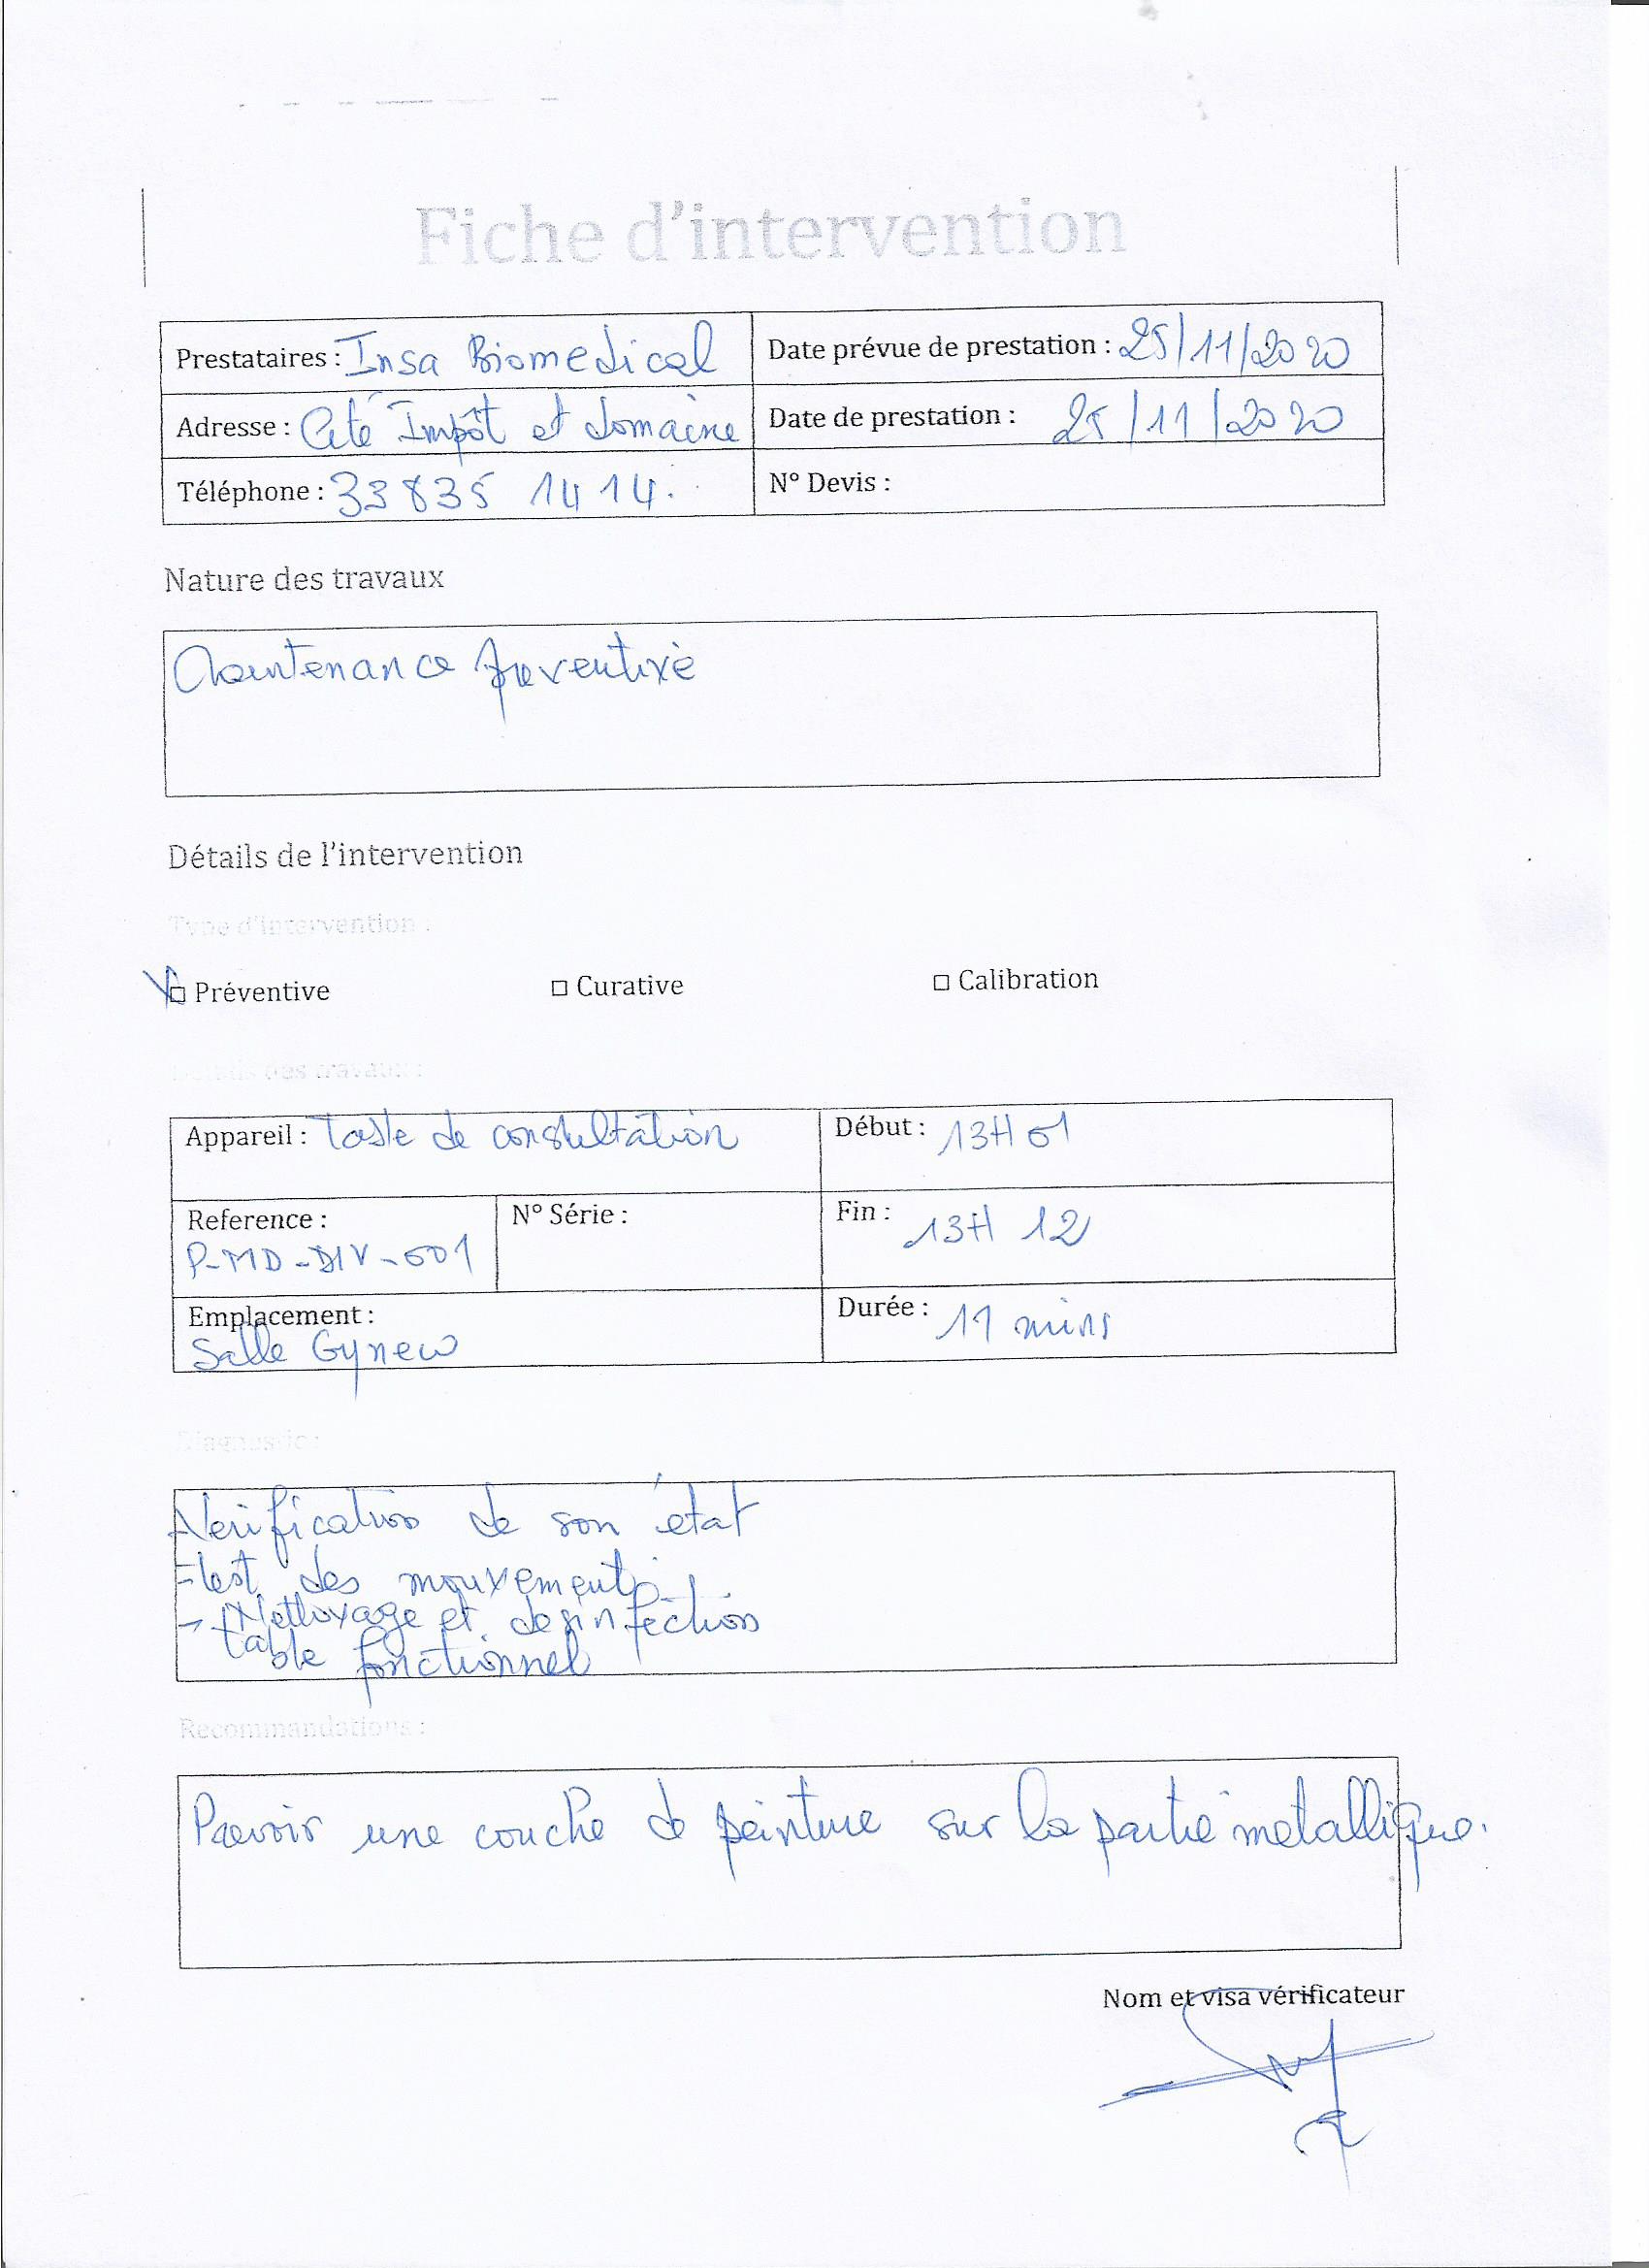 Fiche d'intervention
Prestataires : Insa Biomedical
Date prévue de prestation : 25/11/2020
Adresse : Cité Impôt et domaine
Date de prestation : 25/11/2020
Téléphone : 33 835 14 14.
N° Devis :
Nature des travaux
Maintenance preventive
Détails de l'intervention
Type d'intervention :
Préventive
Curative
Calibration
Détails des travaux :
Appareil : Table de consultation
Début : 13H 01
Reference :
P-MD-DIV-001
N° Série :
Fin : 13H 12
Emplacement :
Salle Gyneco
Durée : 11 mins
Diagnostic :
- Verification de son état
- Test des mouvements
- Nettoyage et desinfection
table fonctionnel
Recommandations :
Prevoir une couche de peinture sur la partie metallique.
Nom et visa vérificateur